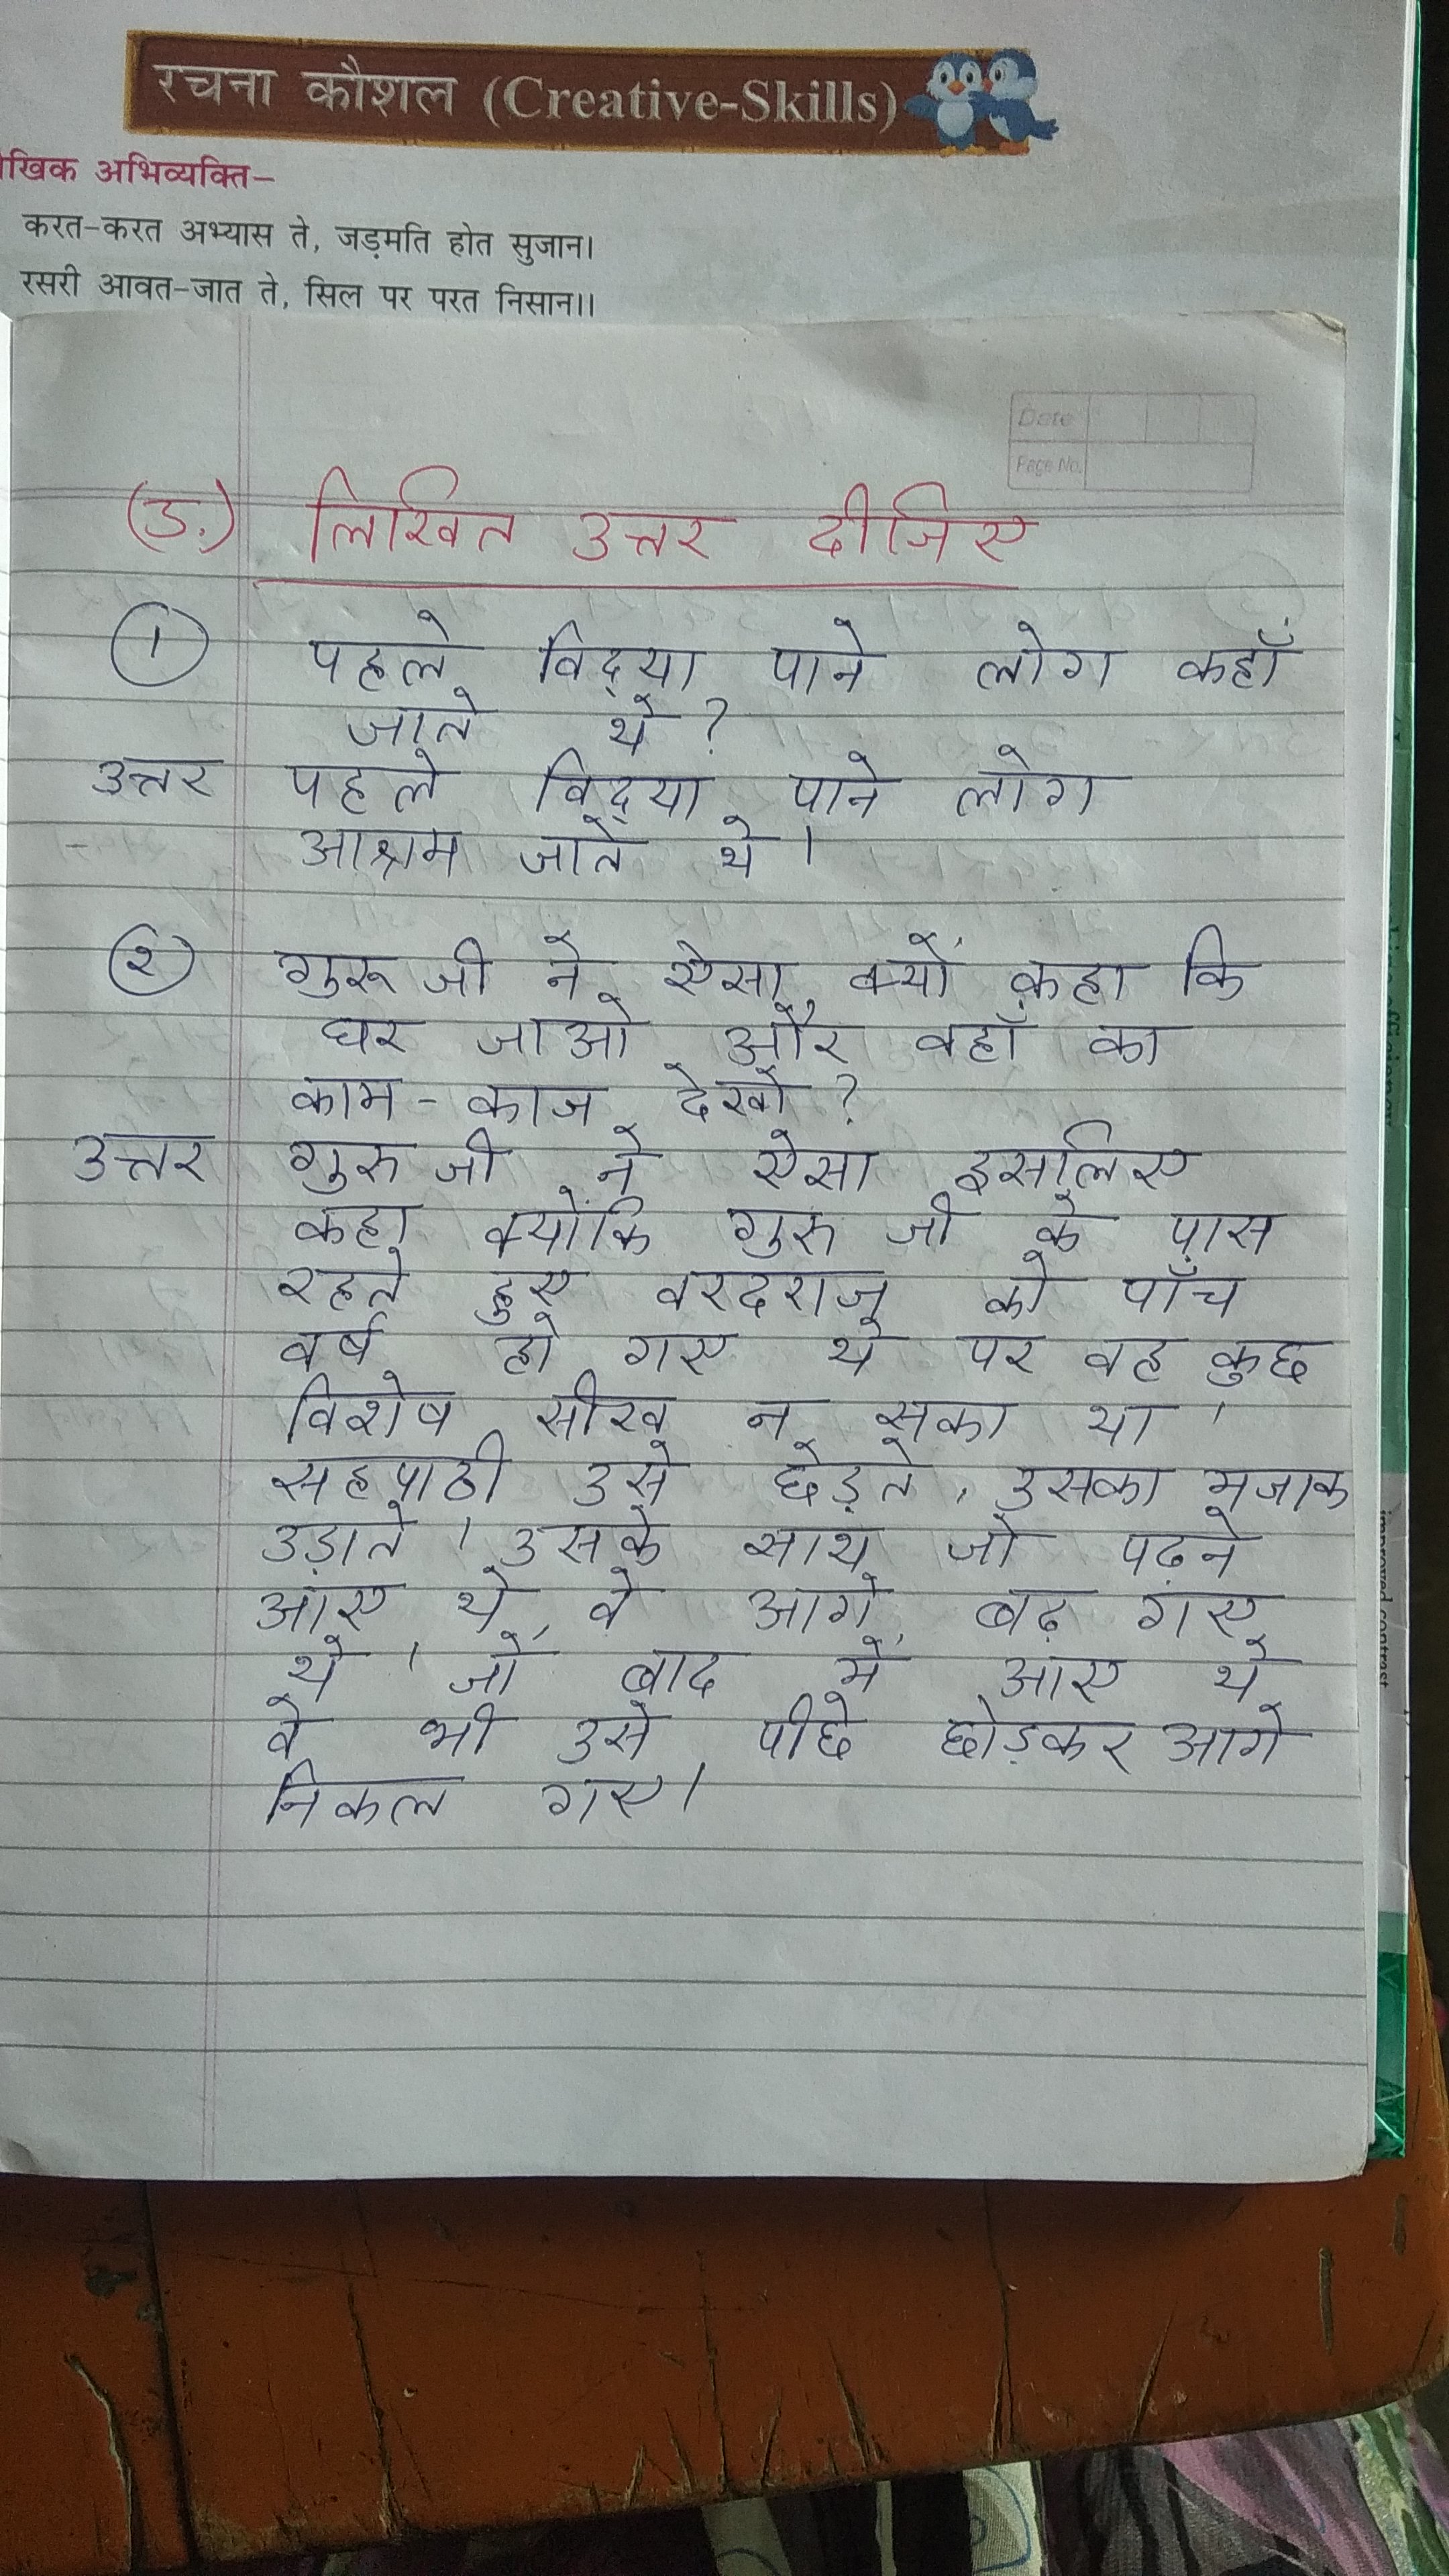 रचना कौशल (Creative-Skills)
खिक अभिव्यक्ति–
करत-करत अभ्यास ते, जड़मति होत सुजान।
रसरी आवत-जात ते, सिल पर परत निसान।।
Date
Page No.
(ङ.) लिखित उत्तर दीजिए
① पहले विद्‌या पाने लोग कहाँ
जाते थे ?
उत्तर पहले विद्‌या पाने लोग
आश्रम जाते थे ।
② गुरू जी ने ऐसा क्यों कहा कि
घर जाओ और वहाँ का
काम - काज देखो ?
उत्तर गुरु जी ने ऐसा इसलिए
कहा क्योंकि गुरु जी के पास
रहते हुए वरदराज को पाँच
वर्ष हो गए थे पर वह कुछ
विशेष सीख न सका था ।
सहपाठी उसे छेड़ते, उसका मजाक
उड़ाते । उसके साथ जो पढ़ने
आए थे, वे आगे बढ़ गए
थे । जो बाद में आए थे
वे भी उसे पीछे छोड़कर आगे
निकल गए।
improved contrast